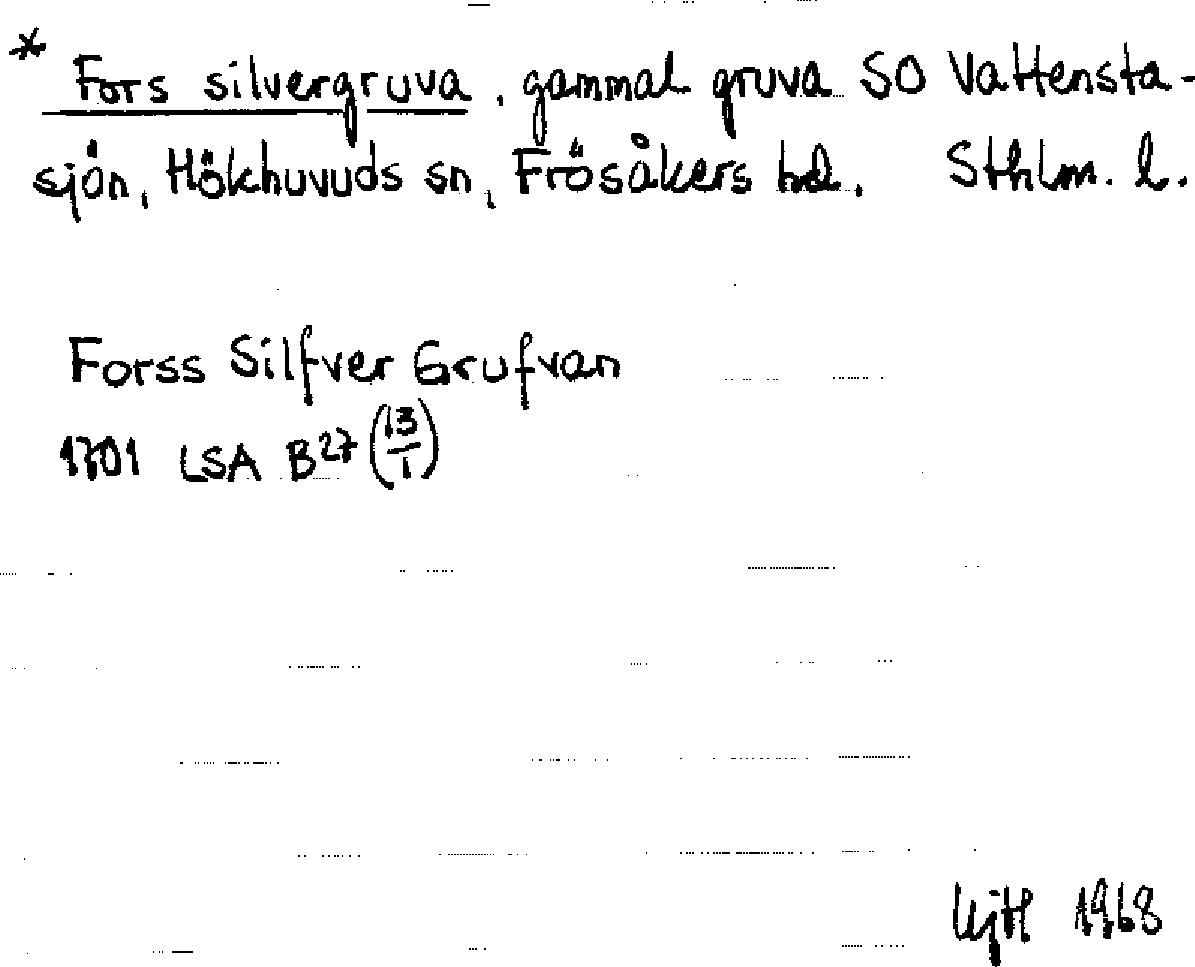 * Fors silvergruva, gammal gruva SO Vattensta-
sjön, Hökhuvuds sn, Frösåkers hd. Sthlm. l.
Forss Silfver Grufvan
1701 LSA B27 (13/1)
1968